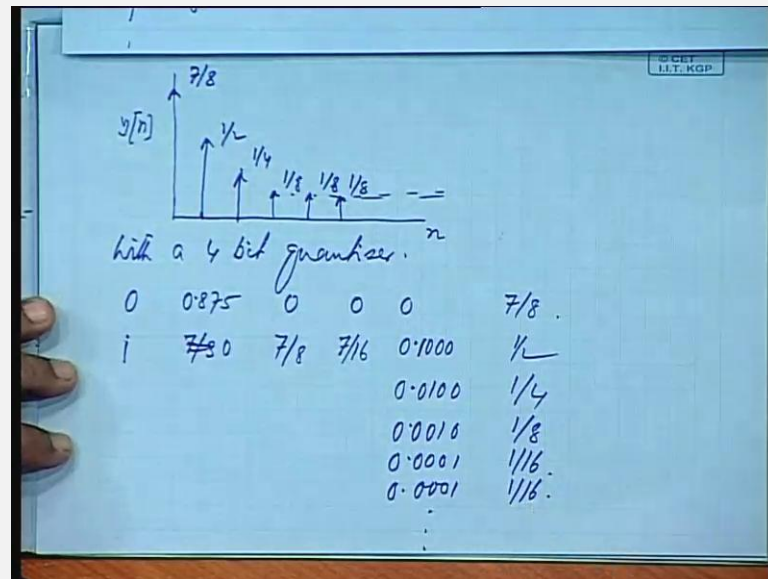 © CET
I.I.T. KGP
7/8
y[n]
1/2
1/4
1/8 1/8 1/8 - - =
n
with a 4 bit quantiser.
0 0.875 0 0 0 7/8.
1 0 7/8 7/16 0.1000 1/2
0.0100 1/4
0.0010 1/8
0.0001 1/16.
0.0001 1/16.